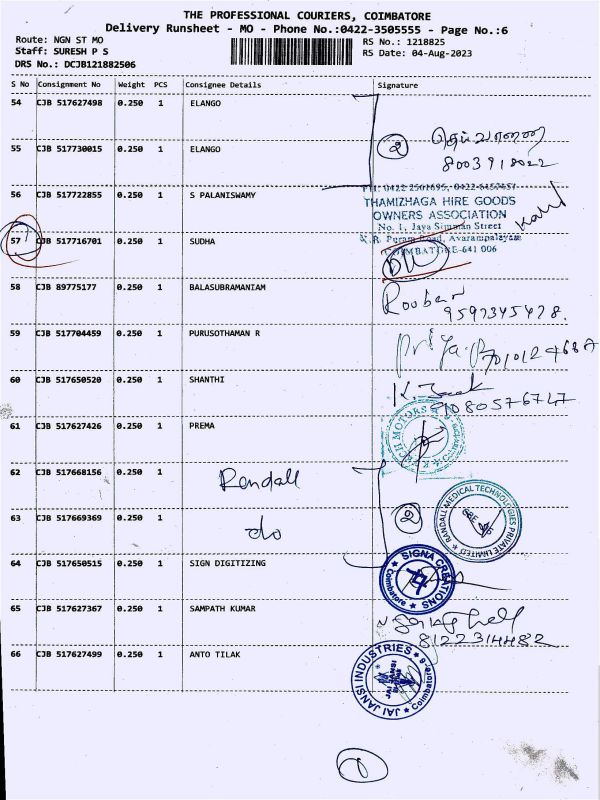 THE PROFESSIONAL COURIERS, COIMBATORE
Delivery Runsheet - MO - Phone No.:0422-3505555 - Page No.:6
Route: NGN ST MO
RS No.: 1218825
Staff: SURESH P S
RS Date: 04-Aug-2023
DRS No.: DCJB121882506
S No Consignment No Weight PCS Consignee Details Signature
54 CJB 517627498 0.250 1 ELANGO
2
8003918022
55 CJB 517730015 0.250 1 ELANGO
56 CJB 517722855 0.250 1 S PALANISWAMY
THAMIZHAGA HIRE GOODS
OWNERS ASSOCIATION
No. 1, Jaya Simman Street
Puram Road, Avarampalayam
COIMBATORE-641 006
57 CJB 517716701 0.250 1 SUDHA
58 CJB 89775177 0.250 1 BALASUBRAMANIAM
59 CJB 517704459 0.250 1 PURUSOTHAMAN R
60 CJB 517650520 0.250 1 SHANTHI
61 CJB 517627426 0.250 1 PREMA
MOTORS
62 CJB 517668156 0.250 1 Randall
RANDALL MEDICAL TECHNOLOGIES PRIVATE LIMITED
63 CJB 517669369 0.250 1 do
2
64 CJB 517650515 0.250 1 SIGN DIGITIZING
SIGNA CREATIONS
Coimbatore
65 CJB 517627367 0.250 1 SAMPATH KUMAR
8122314482
66 CJB 517627499 0.250 1 ANTO TILAK
JAI JANSI INDUSTRIES
Coimbatore-6